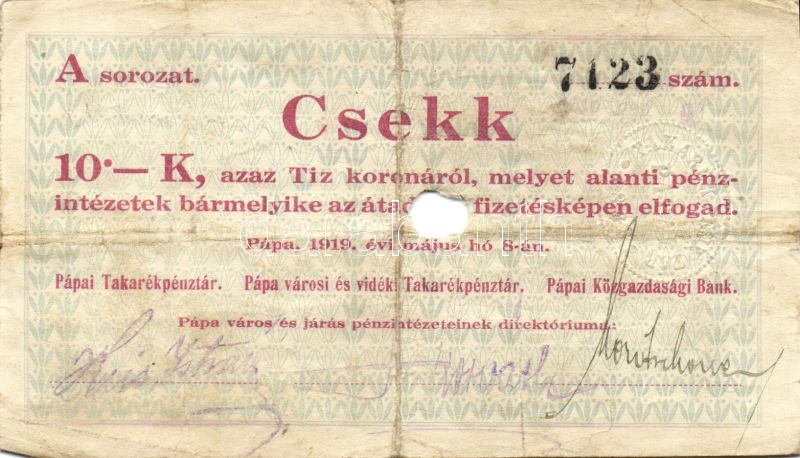 A sorozat. 7123 szám.
Csekk
10·— K, azaz Tiz koronáról, melyet alanti pénz-
intézetek bármelyike az fizetésképen elfogad.
Pápa. 1919. évi május hó 8-án.
Pápai Takarékpénztár. Pápa városi és vidéki Takarékpénztár. Pápai Közgazdasági Bank.
Pápa város és járás pénzintézeteinek direktóriuma: